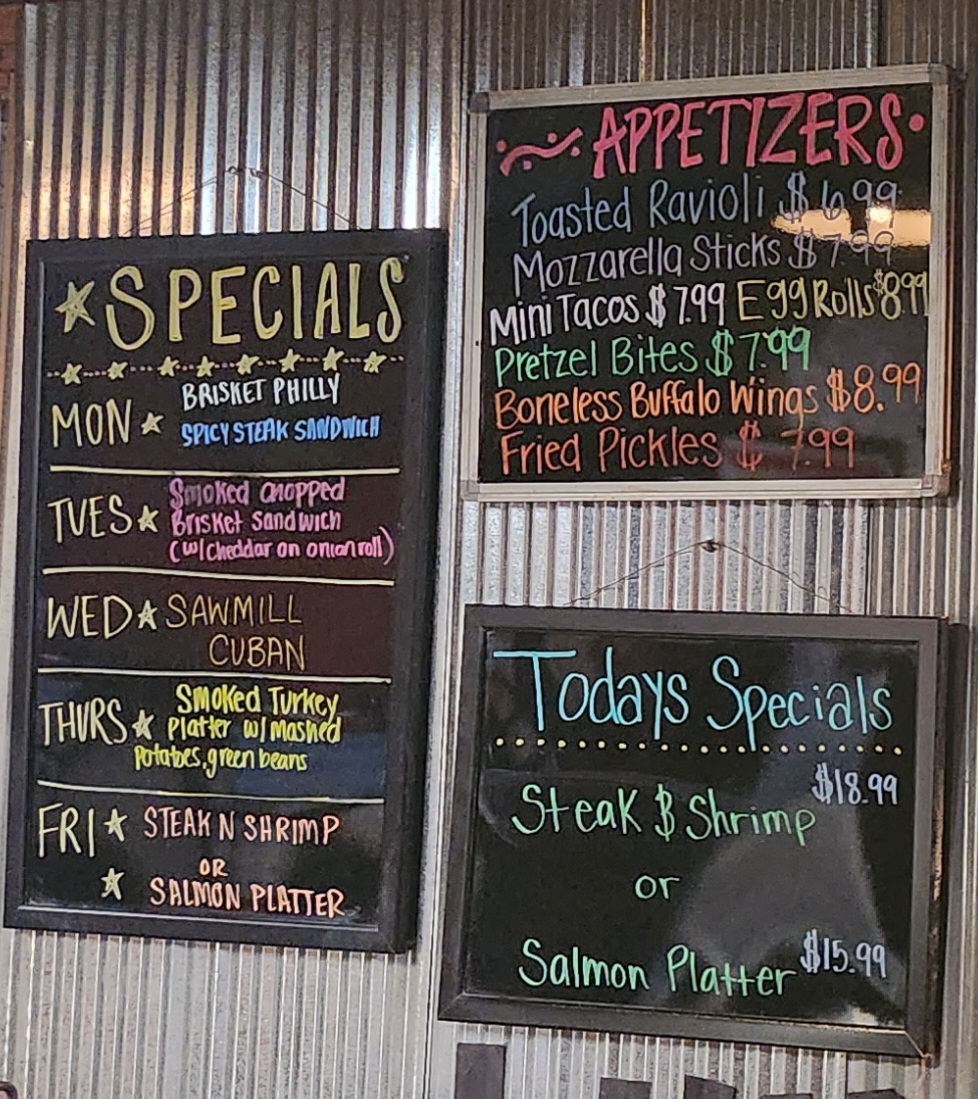 SPECIALS
MON
BRISKET PHILLY
SPICY STEAK SANDWICH
TUES
Smoked chopped
Brisket Sandwich
(w/cheddar on onion roll)
WED SAWMILL
CUBAN
THURS
Smoked Turkey
Platter w/ Mashed
Potatoes, green beans
FRI STEAK N SHRIMP
OR
SALMON PLATTER
APPETIZERS
Toasted Ravioli $6.99
Mozzarella Sticks $7.99
Mini Tacos $7.99 Egg Rolls $8.99
Pretzel Bites $7.99
Boneless Buffalo Wings $8.99
Fried Pickles $ 7.99
Todays Specials
Steak & Shrimp $18.99
or
Salmon Platter $15.99